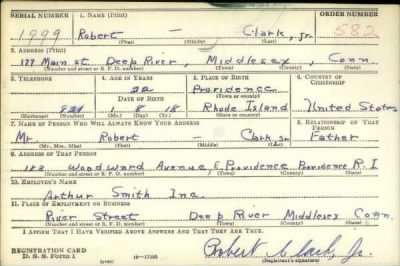 SERIAL NUMBER 1. NAME (Print) ORDER NUMBER
1999 Robert - Clark, Jr. 582
(First) (Middle) (Last)
2. ADDRESS (Print)
177 Main St. Deep River, Middlesex, Conn.
(Number and street or R. F. D. number) (Town) (County) (State)
3. TELEPHONE 4. AGE IN YEARS 5. PLACE OF BIRTH 6. COUNTRY OF CITIZENSHIP
22 Providence
DATE OF BIRTH (Town or county)
1 8 18 Rhode Island United States
(Exchange) (Number) (Mo.) (Day) (Yr.) (State or country)
7. NAME OF PERSON WHO WILL ALWAYS KNOW YOUR ADDRESS 8. RELATIONSHIP OF THAT PERSON
Mr. Robert - Clark, Sr. Father
(Mr., Mrs., Miss) (First) (Middle) (Last)
9. ADDRESS OF THAT PERSON
Woodward Avenue, E. Providence Providence R. I
(Number and street or R. F. D. number) (Town) (County) (State)
10. EMPLOYER'S NAME
Arthur Smith Inc.
11. PLACE OF EMPLOYMENT OR BUSINESS
River Street Deep River Middlesex Conn.
(Number and street or R. F. D. number) (Town) (County) (State)
I AFFIRM THAT I HAVE VERIFIED ABOVE ANSWERS AND THAT THEY ARE TRUE.
REGISTRATION CARD Robert Clark, Jr.
D. S. S. Form 1 (Registrant's signature)